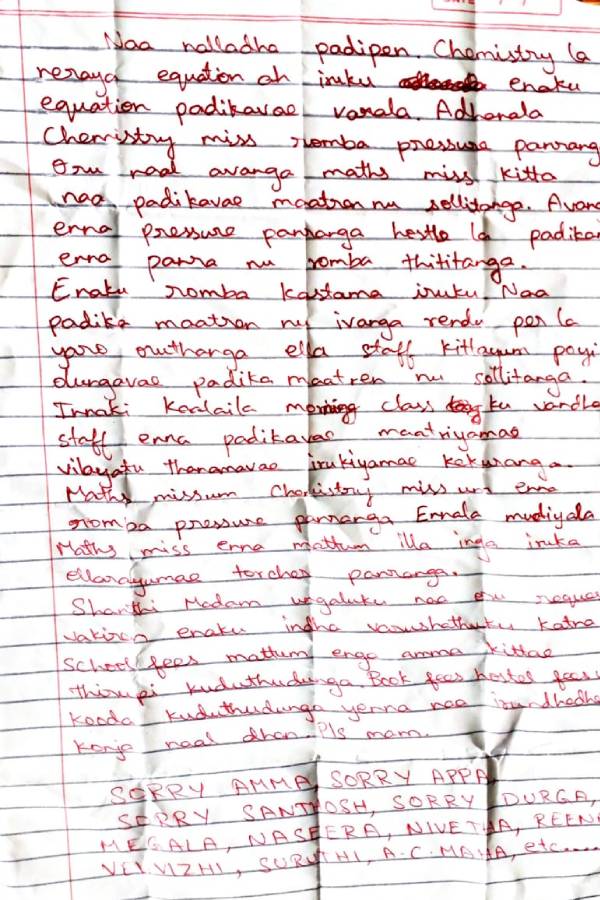 Naa nalladha padipen. Chemistry la
neraya equation ah iruku enaku
equation padikavae varala. Adhanala
Chemistry miss romba pressure panrang
Oru naal avanga maths miss kitta
naa padikavae maatren nu sollitanga. Avang
enna pressure panranga hostle la padikam
enna panra nu romba thititanga.
Enaku romba kastama iruku. Naa
padika maatren nu ivanga rendu per la
yaro oruthanga ella staff kitlayum poyi
dungavae padika maatren nu sollitanga.
Innaki kaalaila morning class ku vandha
staff enna padikavae maatriyamae
vilayatu thanamavae irukiyamae kekuranga.
Maths missum Chemistry miss um enna
romba pressure panranga Ennala mudiyala
Maths miss enna mattum illa inga iruka
ellarayumae torcher panranga.
Shanthi Madam ungaluku naa oru reques
vakiren enaku indha varushathuku katna
School fees mattum enga amma kittae
thirupi kuduthudunga. Book fees hostel fees
kooda kuduthudunga yenna naa irundhadhe
konja naal dhan. Pls mam.
SORRY AMMA, SORRY APPA,
SORRY SANTHOSH, SORRY DURGA,
MEGALA, NASEERA, NIVETHA, REENA
VELVIZHI, SURUTHI, A.C. MAHA, etc.....